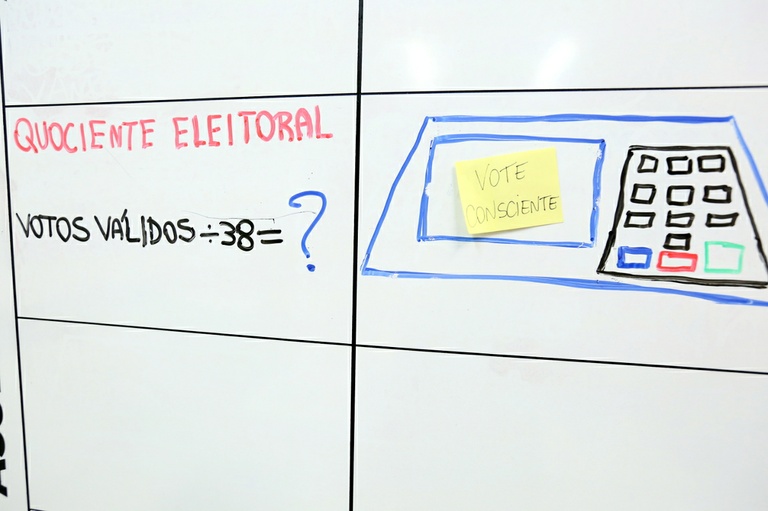 QUOCIENTE ELEITORAL
VOTOS VÁLIDOS ÷ 38 = ?
VOTE
CONSCIENTE